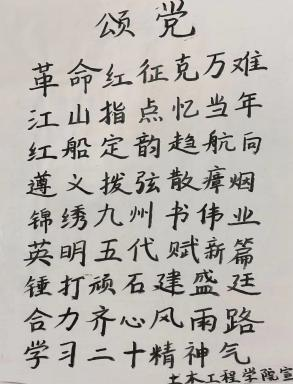 颂党
革命红征克万难
江山指点忆当年
红船定韵趋航向
遵义拨弦散瘴烟
锦绣九州书伟业
英明五代赋新篇
锤打顽石建盛廷
合力齐心风雨路
学习二十精神气
土木工程学院宣